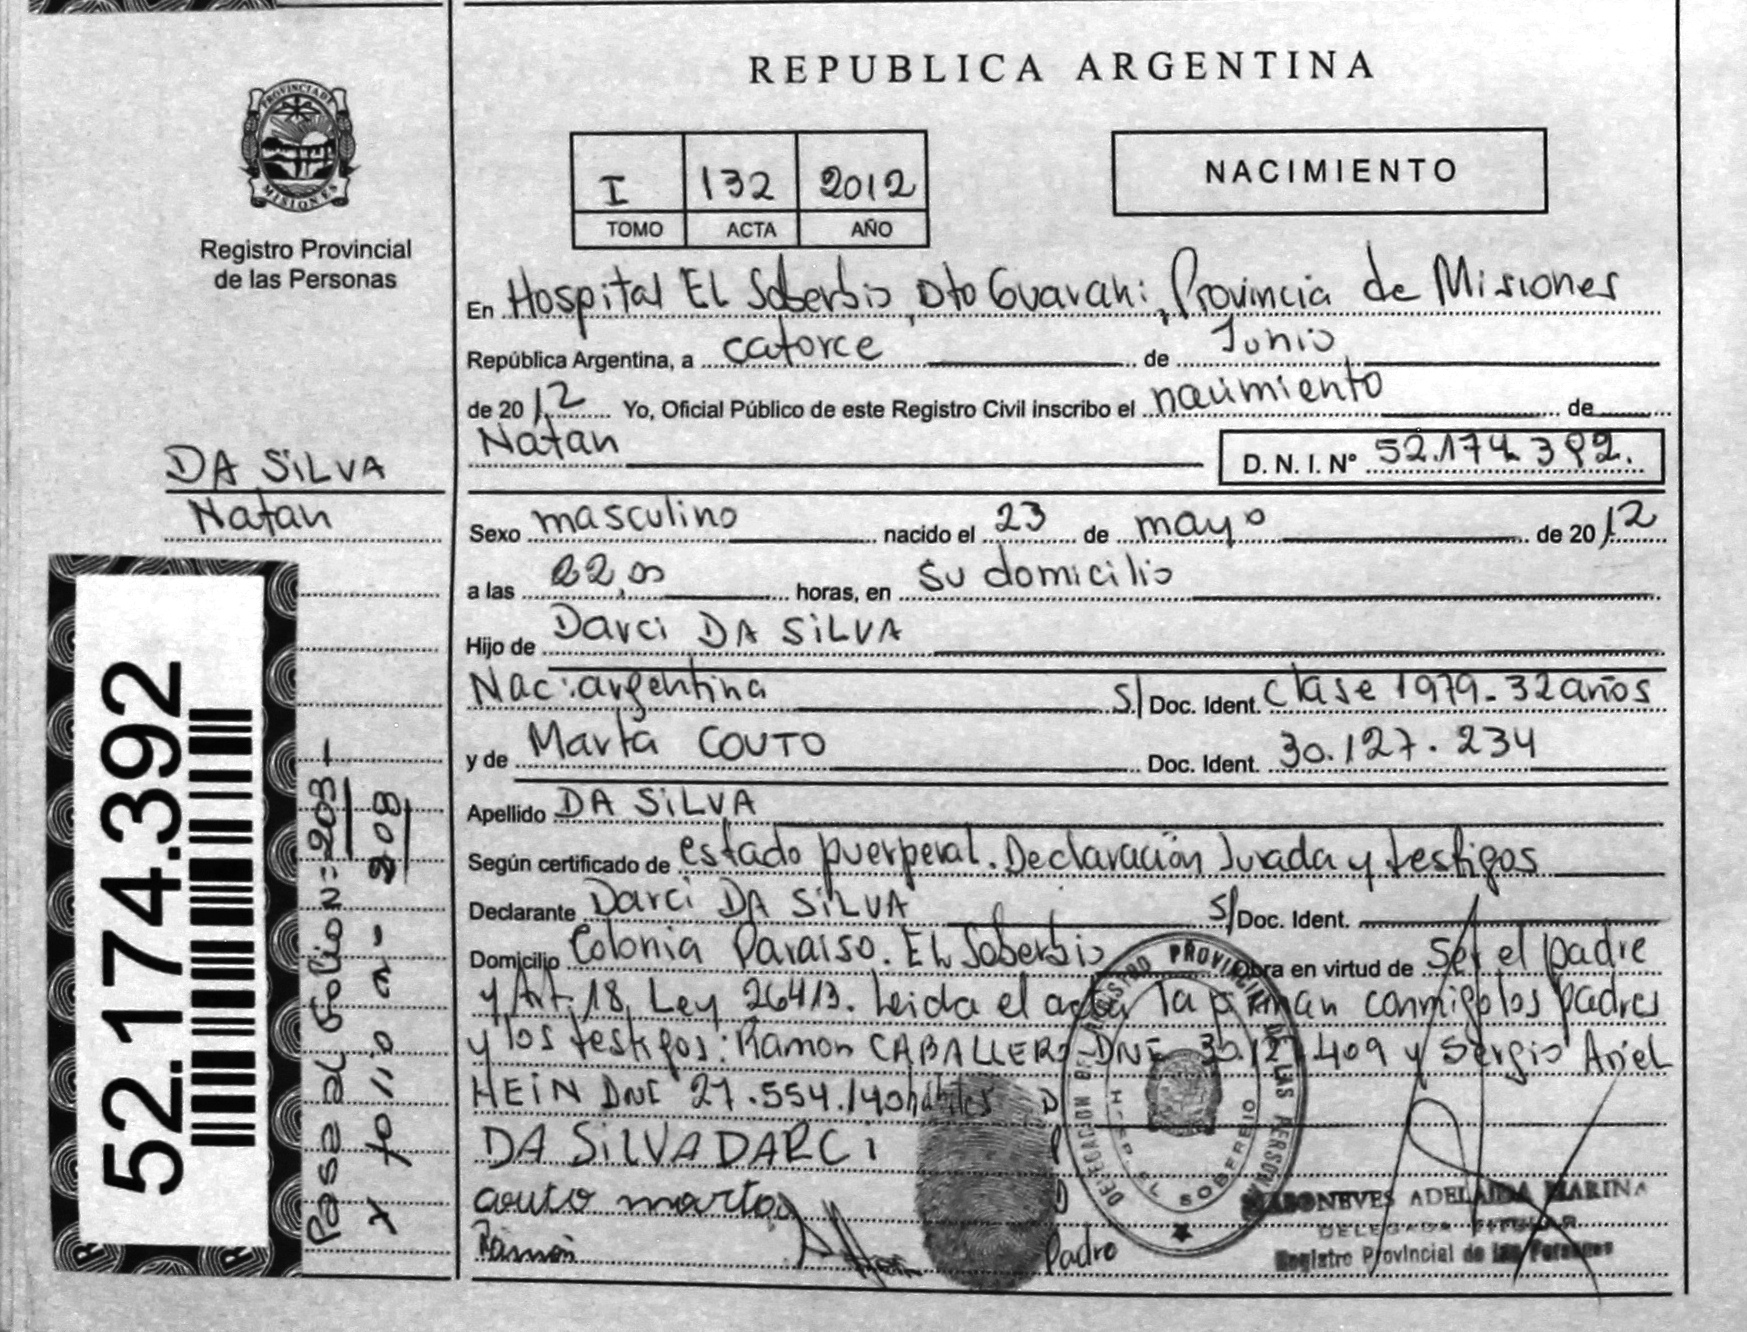 REPUBLICA ARGENTINA
PROVINCIA DE MISIONES
Registro Provincial
de las Personas
I 132 2012
TOMO ACTA AÑO
NACIMIENTO
En Hospital EL Soberbio, Dto Guarani, Provincia de Misiones
República Argentina, a catorce de Junio
de 2012 Yo, Oficial Público de este Registro Civil inscribo el nacimiento de
Natan D. N. I. N° 52.174.392.
DA SiLVA
Natan
Sexo masculino nacido el 23 de mayo de 2012
a las 22,00 horas, en su domicilio
Hijo de Darci DA SiLVA
Nac: argentina S/ Doc. Ident. Clase 1979 - 32 años
y de Marta COUTO Doc. Ident. 30.127.234
Apellido DA SiLVA
Según certificado de estado puerperal. Declaración Jurada y testigos
Declarante Darci DA SiLVA S/ Doc. Ident.
Domicilio Colonia Paraiso. EL Soberbio Obra en virtud de ser el padre
y Art. 18 Ley 26413. Leida el acta la firman conmigo los padres
y los testigos: Ramon CABALLERO DNI 30.127.409 y Sergio Ariel
HEiN DNI 27.554.140 hábiles
DA SiLVA DARCi
couto marta
Ramon Padre
52.174.392
Pase al folio Nº 203 -
y folio 208
DELEGACION DEL REGISTRO PROVINCIAL DE LAS PERSONAS
EL SOBERBIO
NEVES ADELAIDA MARINA
DELEGADA TITULAR
Registro Provincial de las Personas